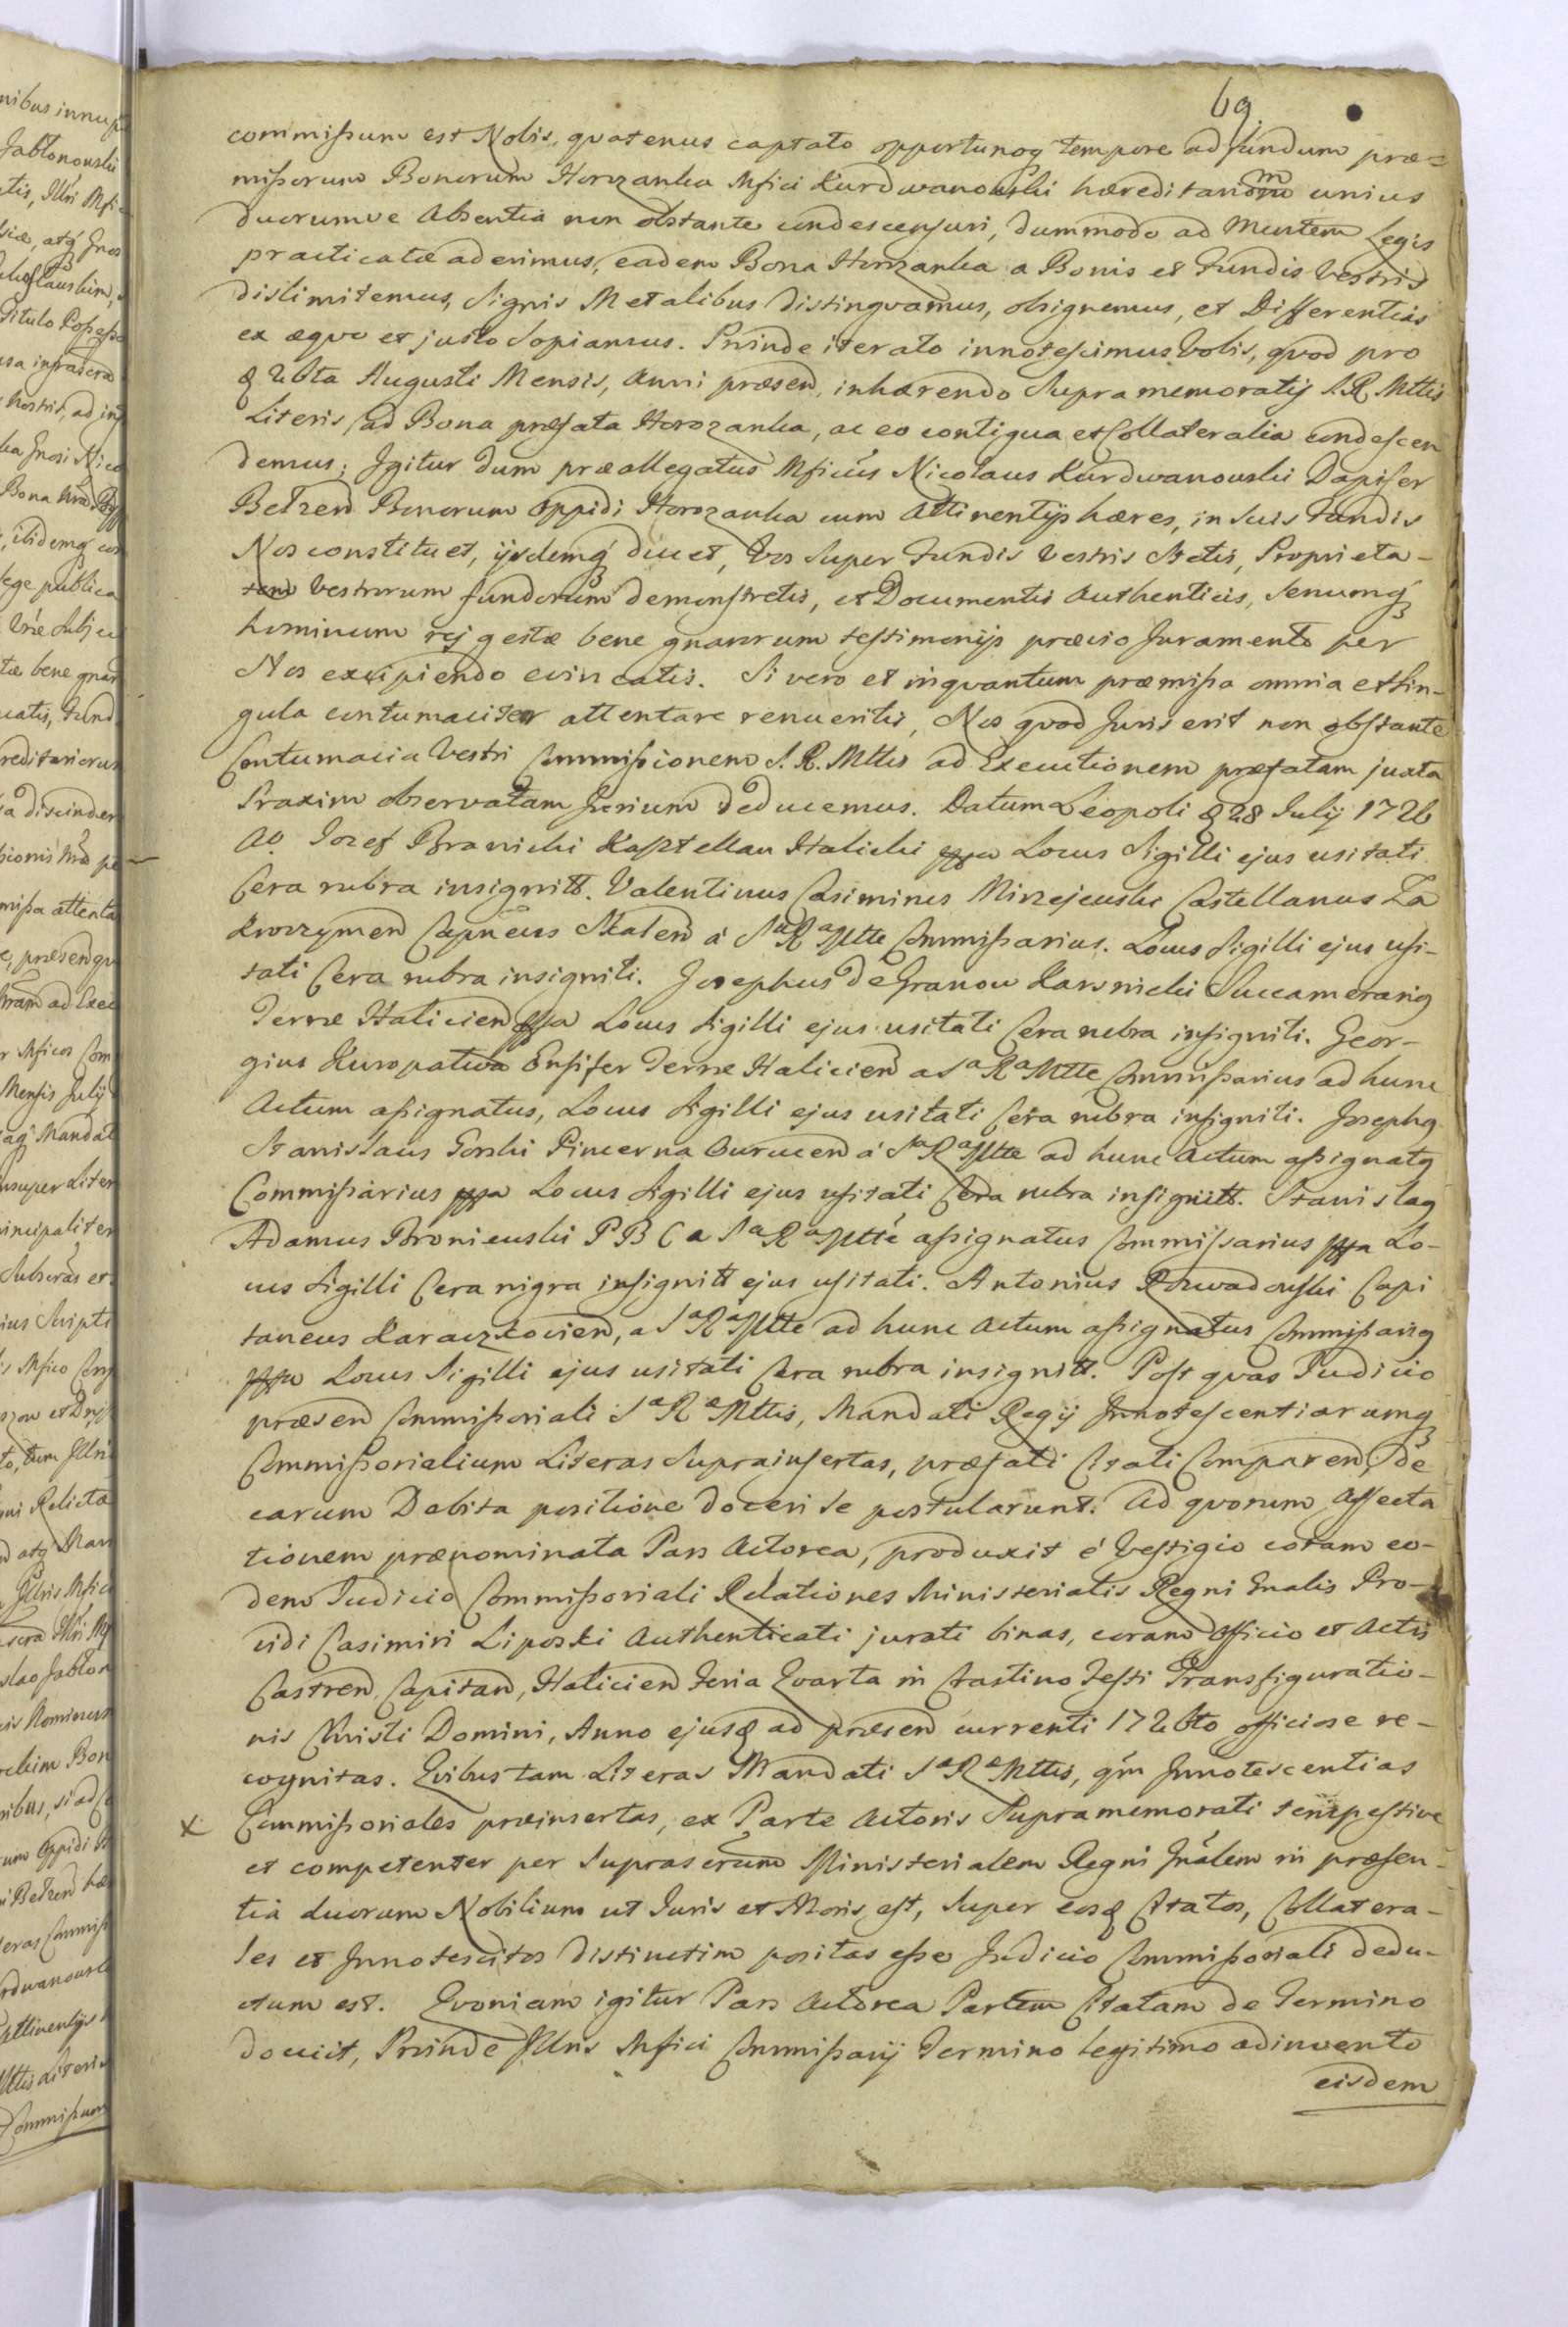 69.
commißum est Nobis, qvatenus captato opportunoq tempore ad fundum præ=
mißorum Bonorum Horozanka Mfici Kurdwanowski hæreditariorum unius
duorumve Absentia non obstante condescensuri, dummodo ad Mentem Legis
practicatæ aderimus, eadem Bona Horozanka a Bonis et Fundis Vestris
dislimitemus, Signis Metalibus distingvamus, obsignemus, et Differentias
ex æqvo et justo Sopiamus. Proinde iterato innotescimus Vobis, qvod pro
8 Abta Augusti Mensis, Anni præsen, inhærendo Supra memoratis S. R. Mttis
Literis, ad Bona præfata Horozanka, ac eo contigua et Collateralia condescen
demus; Igitur dum præallegatus Mficus Nicolaus Kurdwanowski Dapifer
Betzen Bonorum Oppidi Horozanka cum Attinentijs hæres, in Suis Fundis
Nos constituet, ijsdemq ducet, Vos Super Fundis Vestris Stetis, Proprieta-
tem Vestrorum fundorum demonstretis, et Documentis Authenticis, Senumq
hominum rej gestæ bene gnarorum testimonijs prævio Juramento per
Nos excipiendo evincatis. Si vero et inqvantum præmißa omnia et Sin-
gula contumaciter attentare renueritis, Nos qvod Juris erit non obstante
Contumacia Vestri Commißionem S. R. Mttis ad Executionem præfatam juxta
Praxim observatam Jurium deducemus. Datum Leopoli 8 28 Julij 1726
Ao Jozef Branicki Kasztellan Halicki mppa Locus Sigilli ejus usitati
Cera rubra insignitt. Valentinus Casimirus Mirzejewski Castellanus Za
kroczymen Capneus Skalen á SaRaMtte Commißarius. Locus Sigilli ejus usi-
tati Cera rubra insigniti. Josephus de Granow Karsnicki Succamerariq
Terræ Halicien mppa Locus Sigilli ejus usitati Cera rubra insigniti. Geor-
gius Kuropatwa Ensifer Terræ Halicien a SaRaMtte Commißarius ad hunc
Actum aßignatus, Locus Sigilli ejus usitati Cera rubra insigniti. Josephq
Stanislaus Gorski Pincerna Owrucen á SaRaMtte ad hunc Actum aßignatq
Commißarius mppa Locus Sigilli ejus usitati Cera rubra insignitt. Stanislaq
Adamus Broniewski P B C a SaRaMtte aßignatus Commißarius mppa Lo-
cus Sigilli Cera nigra insignitt ejus usitati. Antonius Rozwadowski Capi
taneus Karaczkocien, a SaRaMtte ad hunc Actum aßignatus Commißariq
mppa Locus Sigilli ejus usitati Cera rubra insignitt. Post qvas Judicio
præsen Commißoriali SæRæMttis, Mandati Regij Innotescentiarumq
Commißorialium Literas Suprainsertas, præfati Citati Comparen, de
earum Debita positione doceri se postularunt. Ad qvorum Affecta
tionem prænominata Pars Actorea, produxit é Vestigio coram eo-
dem Judicio Commißoriali Relationes Ministerialis Regni Gnalis Pro-
vidi Casimiri Liposki Authenticati jurati binas, coram Officio et Actis
Castren, Capitan, Halicien Feria Qvarta in Crastino Festi Transfiguratio-
nis Christi Domini, Anno ejusq ad præsen currenti 1726to officiose re-
cognitas. Qvibus tam Literas Mandati SæRæMttis, qm Innotescentias
x Commißoriales præinsertas, ex Parte Actoris Supramemorati tempestive
et competenter per Suprascrum Ministerialem Regni Gnálem in præsen-
tia duorum Nobilium ut Juris et Moris est, Super eosq Citatos, Collatera-
les et Innotescitos distinctim positas eße Judicio Commißoriali dedu-
ctum est. Qvoniam igitur Pars Actorea Partem Citatam de Termino
docuit, Proinde Illris Mfici Commißarij Termino legitimo adinvento
eisdem